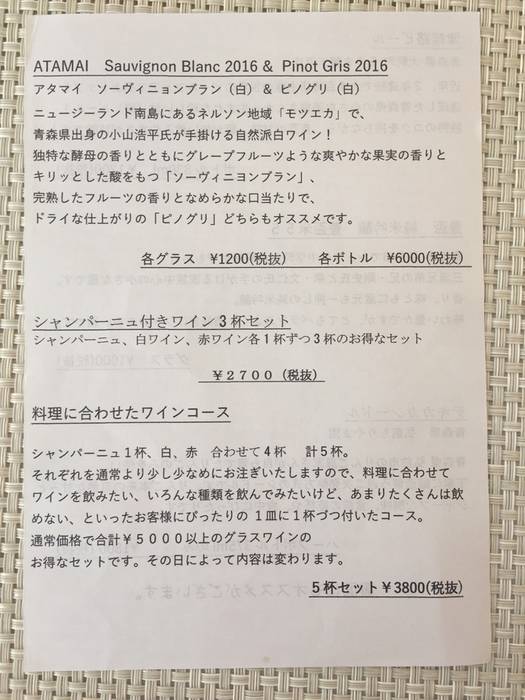 ATAMAI Sauvignon Blanc 2016 & Pinot Gris 2016
アタマイ ソーヴィニョンブラン（白）& ピノグリ（白）
ニュージーランド南島にあるネルソン地域「モツエカ」で、
青森県出身の小山浩平氏が手掛ける自然派白ワイン！
独特な酵母の香りとともにグレープフルーツような爽やかな果実の香りと
キリッとした酸をもつ「ソーヴィニヨンブラン」、
完熟したフルーツの香りとなめらかな口当たりで、
ドライな仕上がりの「ピノグリ」どちらもオススメです。
各グラス ¥1200(税抜) 各ボトル ¥6000(税抜)
シャンパーニュ付きワイン３杯セット
シャンパーニュ、白ワイン、赤ワイン各１杯ずつ３杯のお得なセット
￥２７００（税抜）
料理に合わせたワインコース
シャンパーニュ１杯、白、赤 合わせて４杯 計５杯。
それぞれを通常より少し少なめにお注ぎいたしますので、料理に合わせて
ワインを飲みたい、いろんな種類を飲んでみたいけど、あまりたくさんは飲
めない、といったお客様にぴったりの １皿に１杯づつ付いたコース。
通常価格で合計￥５０００以上のグラスワインの
お得なセットです。その日によって内容は変わります。
５杯セット￥3800(税抜)